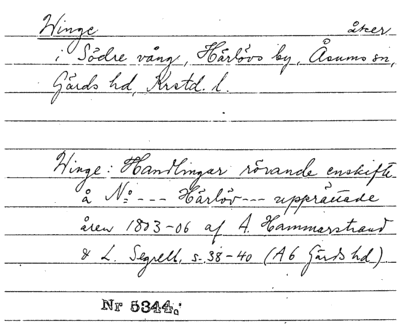 Winge åker
i Södre vång, Härlövs by, Åsums sn,
Gärds hd, Krstd. l.
Winge: Handlingar rörande enskifte
å No --- Härlöv --- upprättade
åren 1803-06 af A. Hammarstrand
& L. Segrell, s. 38-40 (A6 Gärds hd)
Nr 5344.